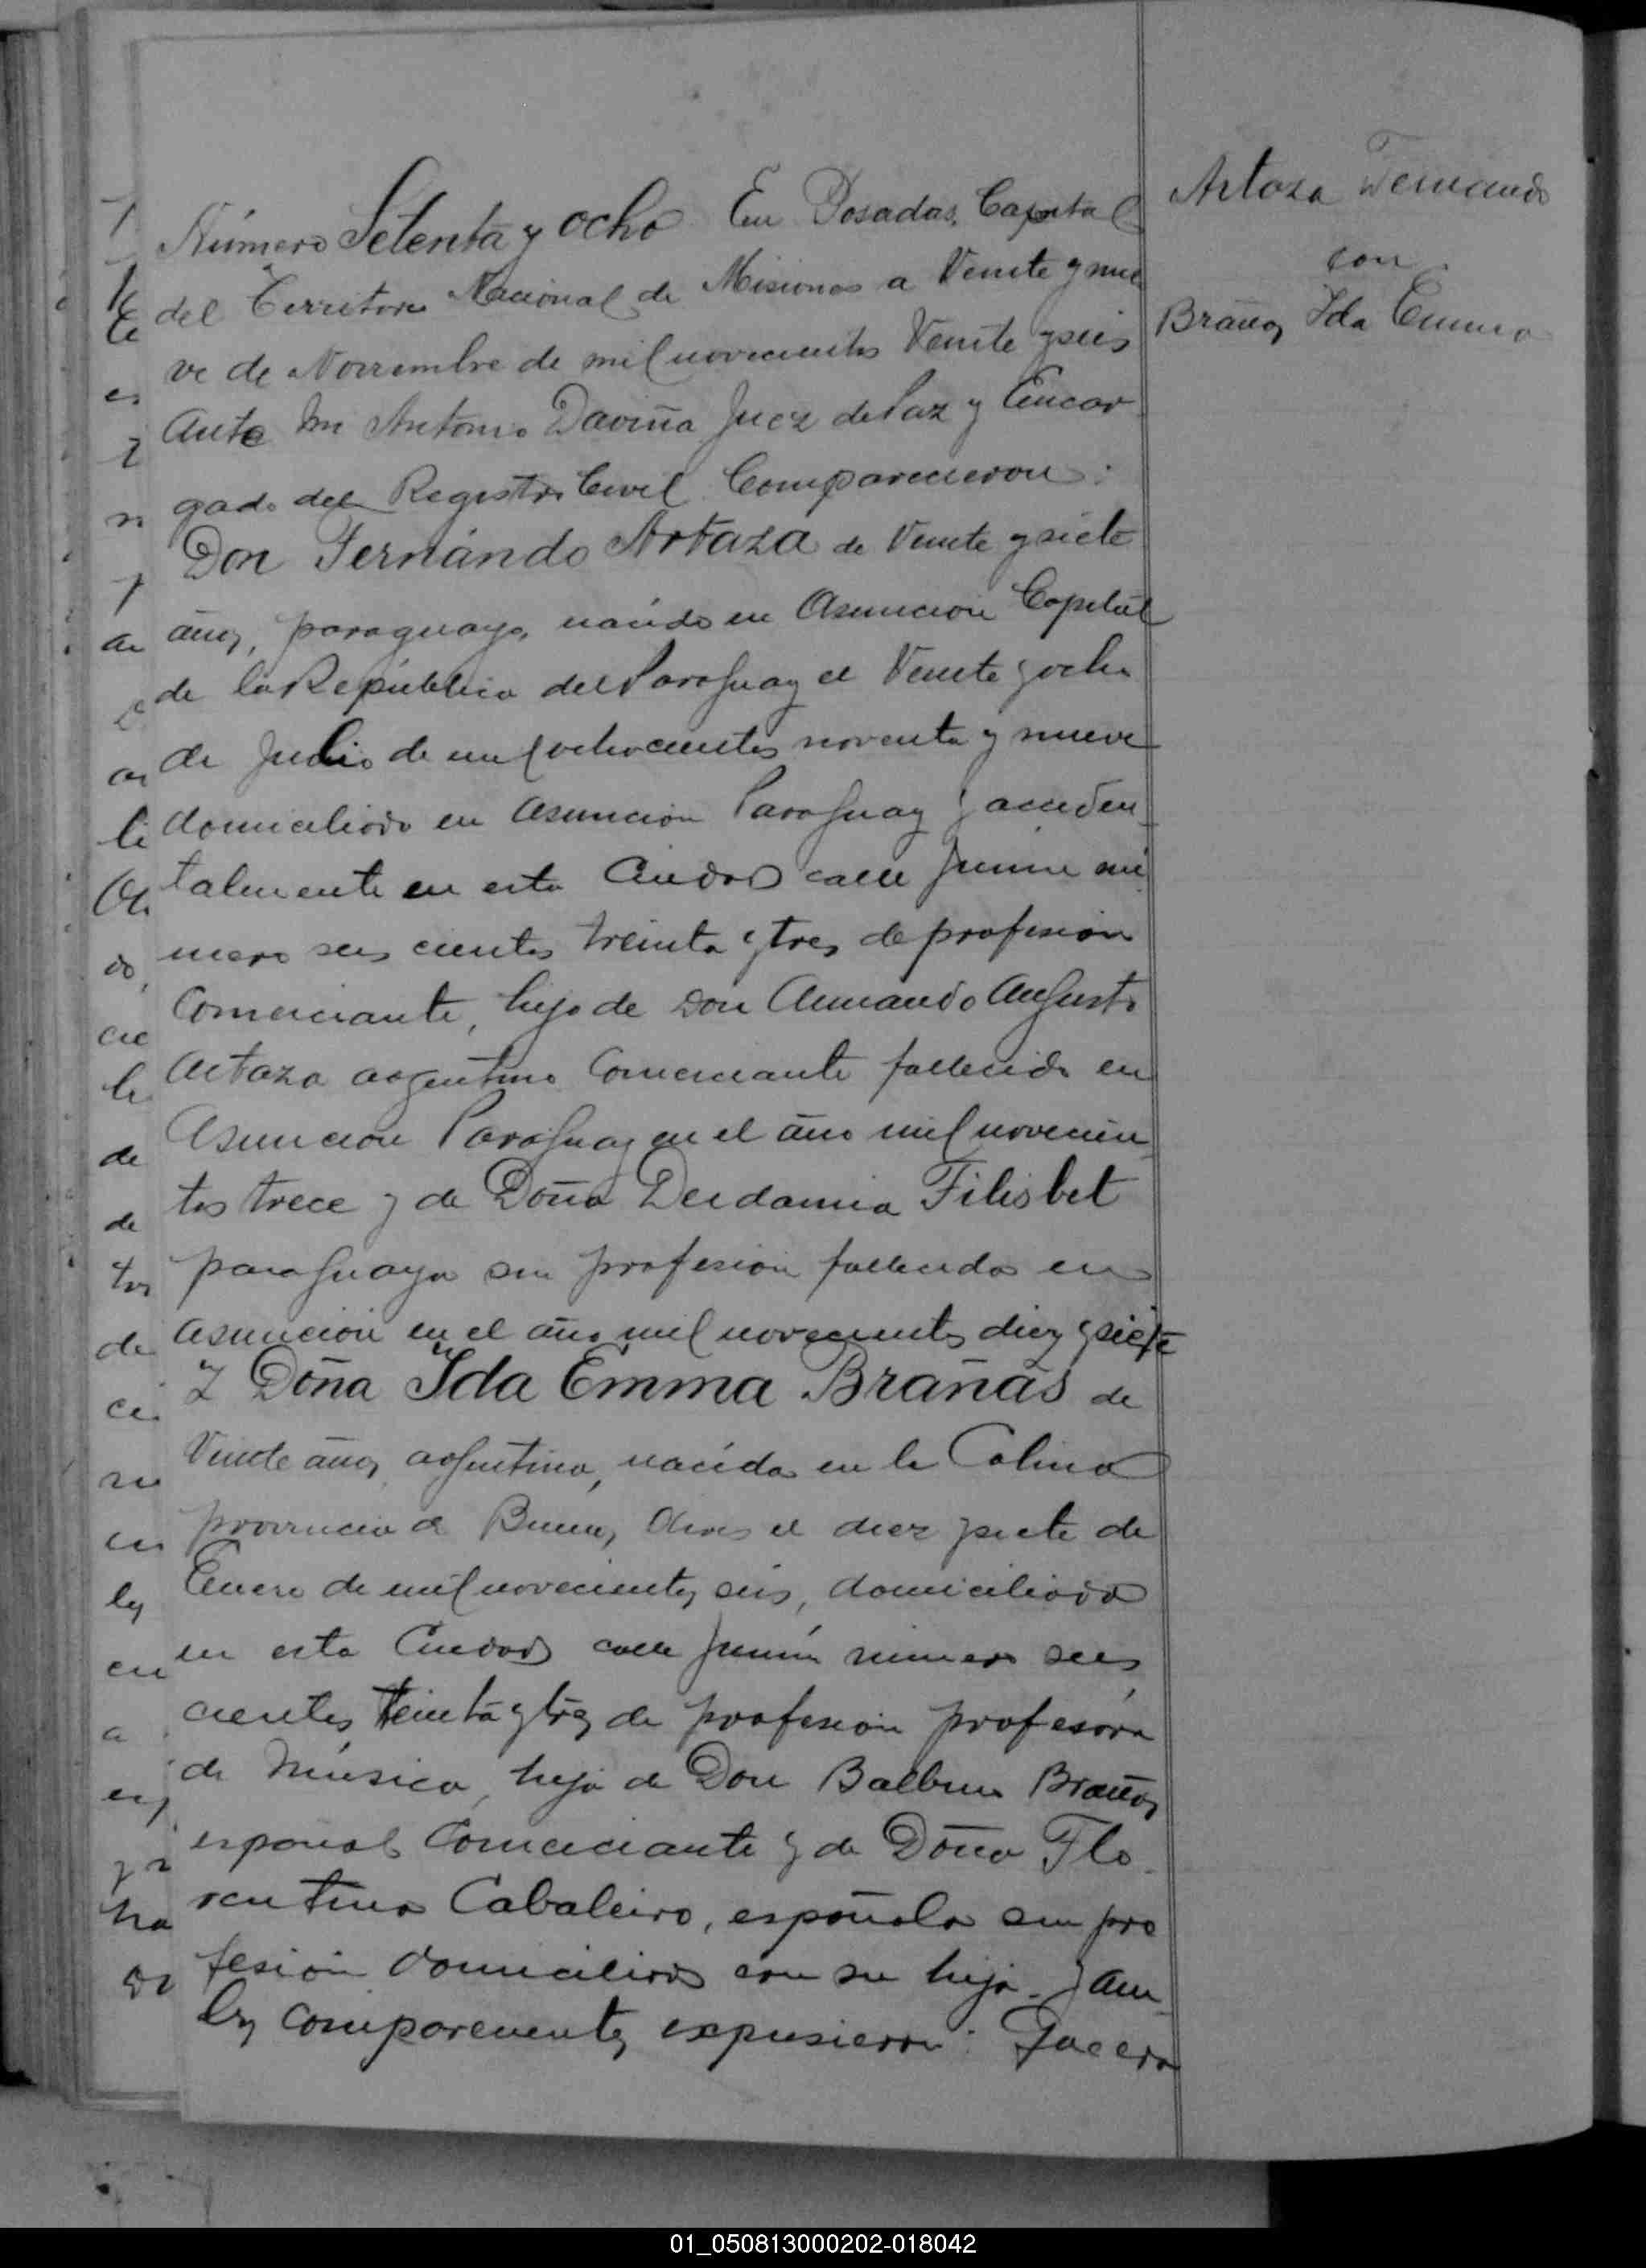 Artaza Fernando
con
Brañas Ida Emma
Número Setenta y ocho En Posadas, Capital
del Territorio Nacional de Misiones a Veinte y nue
ve de Noviembre de mil novecientos Veinte y seis
Ante mi Antonio Daviña Juez de Paz y Encar
gado del Registro Civil Comparecieron:
Don Fernándo Artaza de Veinte y siete
años, paraguayo, nacido en Asunción Capital
de la República del Paraguay el Veinte y ocho
de Julio de mil ochocientos noventa y nueve
domiciliado en Asunción Paraguay y acciden
talmente en esta Ciudad calle Junin nú
mero seis cientos treinta y tres de profesión
Comerciante, hijo de Don Armando Augusto
Artaza argentino Comerciante fallecido en
Asunción Paraguay en el año mil novecien
tos trece y de Doña Deidamia Filisbet
paraguaya sin profesion fallecida en
Asunción en el año mil novecientos diez y siete
y Doña Ida Emma Brañas de
Veinte años argentina, nacida en la Colina
provincia de Buenos Aires el diez y siete de
Enero de mil novecientos seis, domiciliada
en esta Ciudad calle Junín número seis
cientos treinta y tres de profesión profesora
de Música, hija de Don Balbino Brañas
español Comerciante y de Doña Flo
rentina Cabaleiro, española sin pro
fesión domiciliados con su hija. Y am
bos comparecientes expusieron: Que era
01_050813000202-018042